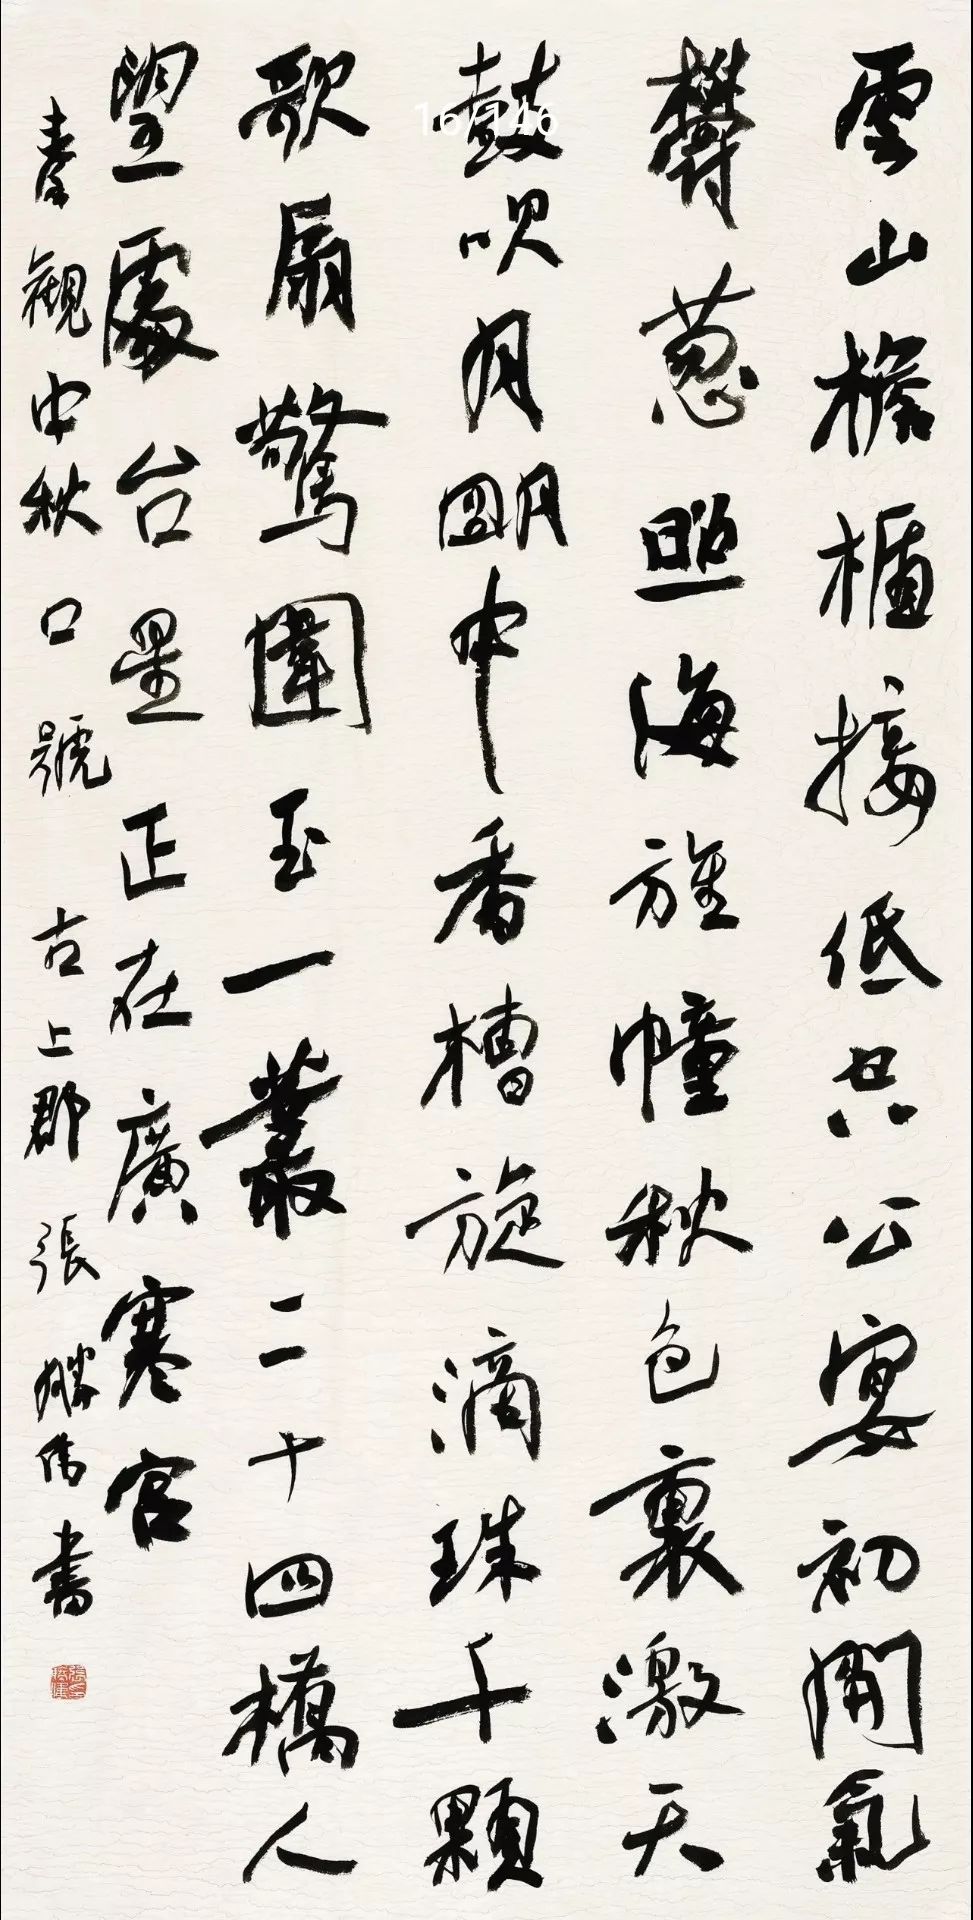 雲山檐楯接低空公宴初開氣
欎葱照海旌幢秋色裏激天
鼓吹月明中香槽旋滴珠千顆
歌扇驚圍玉一叢二十四橋人
望處台星正在廣寒宮
秦觀中秋口號 古上郡張勝偉書
16/146